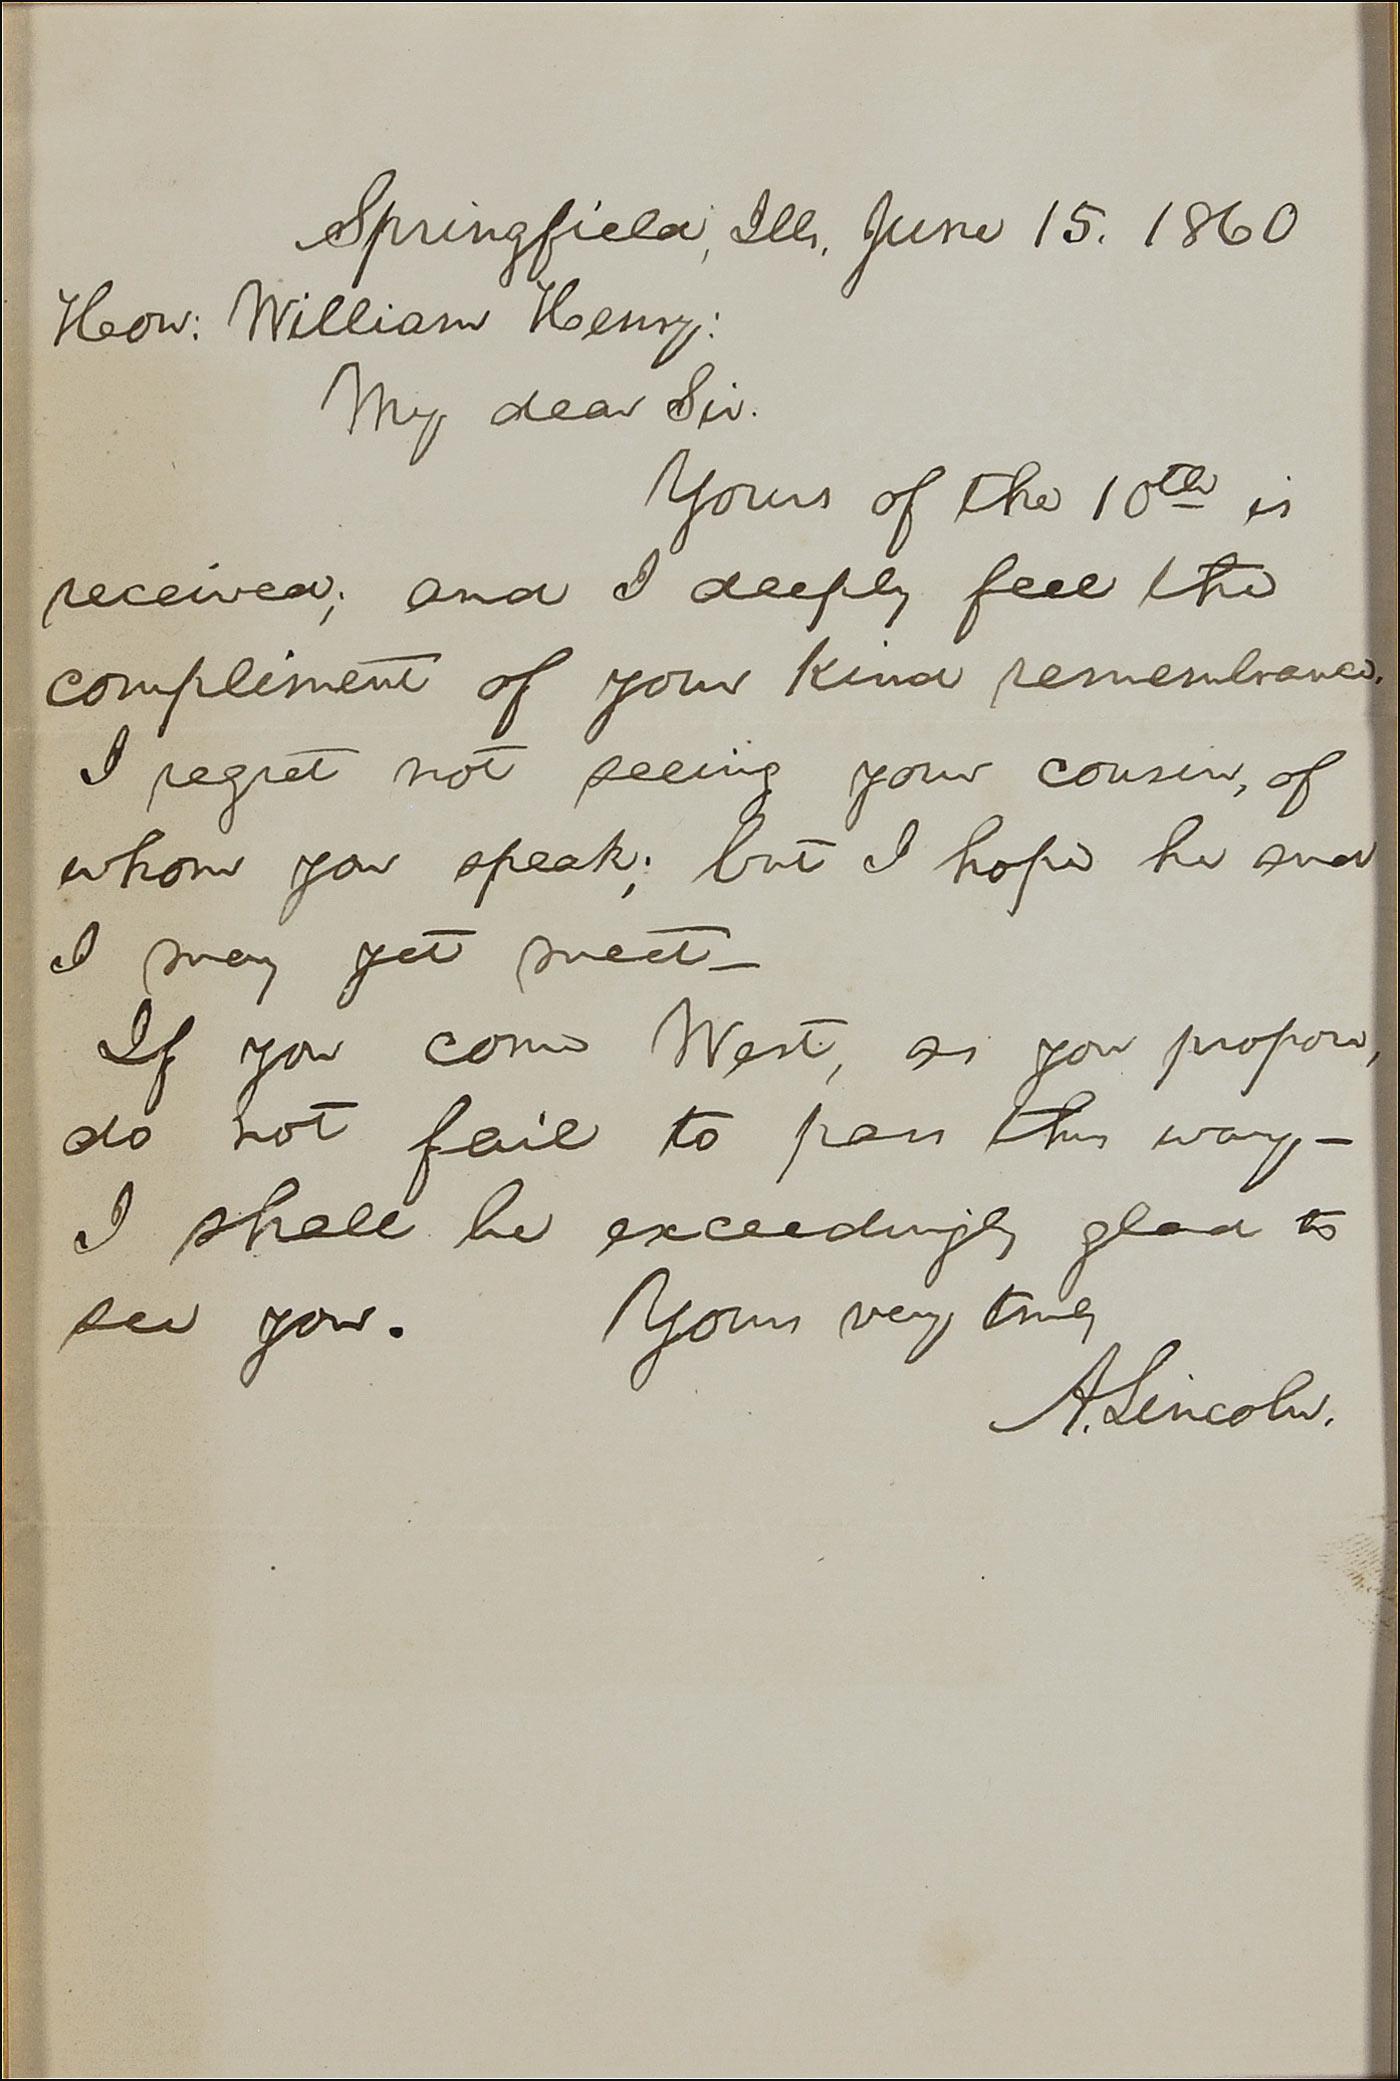 Springfield, Ills, June 15. 1860
Hon: William Henry:
My dear Sir.
Yours of the 10th is
received; and I deeply feel the
compliment of your kind remembrance.
I regret not seeing your cousin, of
whom you speak; but I hope he and
I may yet meet—
If you come West, as you propose,
do not fail to pass this way—
I shall be exceedingly glad to
see you. Yours very truly
A. Lincoln.